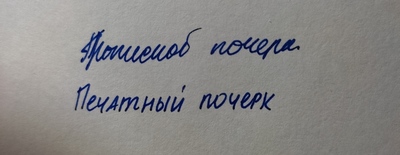 Прописноб почерк
Печатный почерк